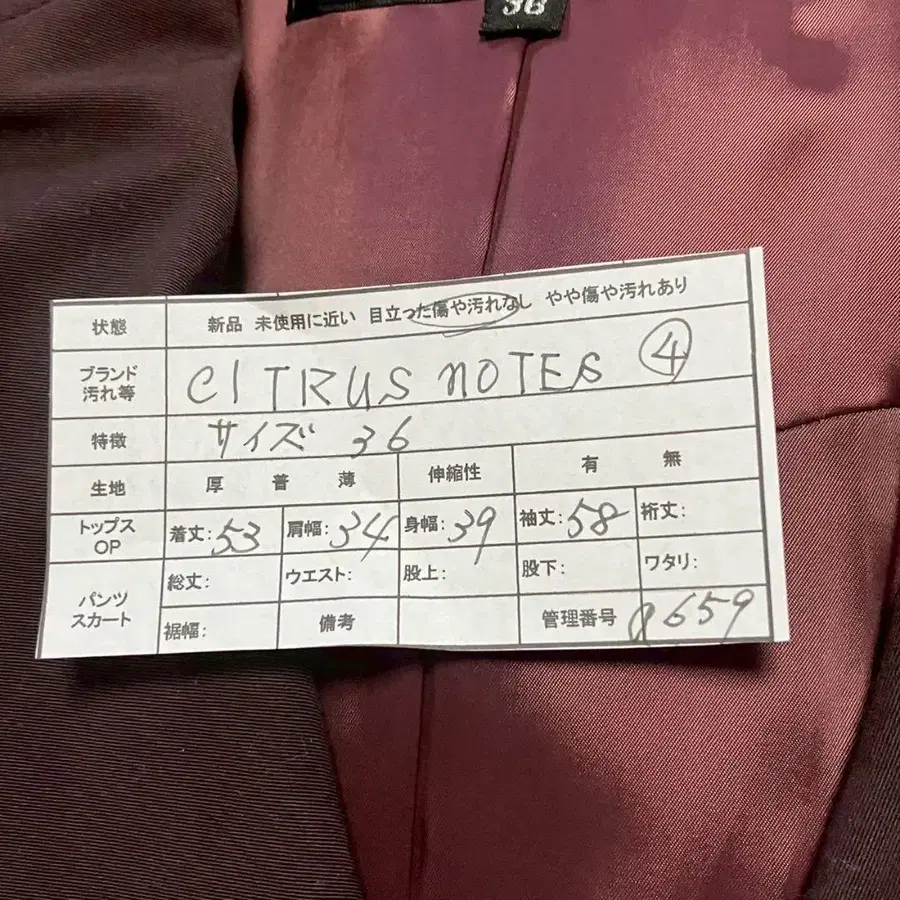 36
状態 新品 未使用に近い 目立った傷や汚れなし やや傷や汚れあり
ブランド 汚れ等 CITRUS NOTES ④
特徴 サイズ 36
生地 厚 普 薄 伸縮性 有 無
トップス OP 着丈:53 肩幅:34 身幅:39 袖丈:58 裄丈:
パンツ スカート 総丈: ウエスト: 股上: 股下: ワタリ:
裾幅: 備考 管理番号 a659